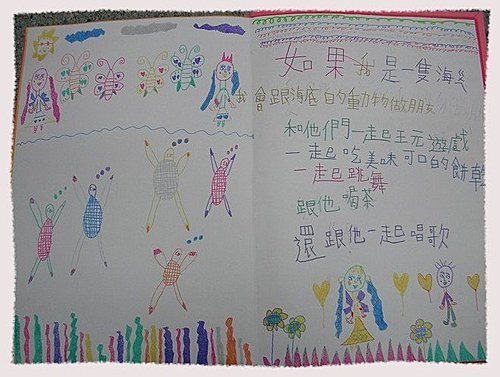 如果我是隻海
我會跟海底的動物做朋友
和他們一起玩遊戲
一起吃美味可口的餅乾
一起跳舞
跟他喝茶
還跟他一起唱歌